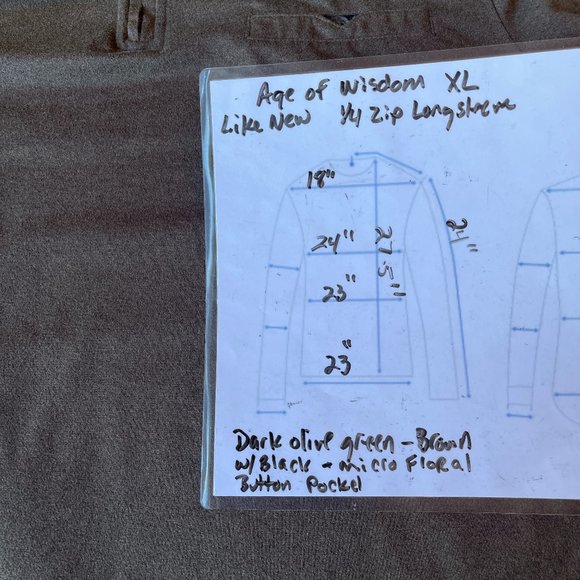 Age of Wisdom XL
Like New 1/4 Zip Longsleeve
18"
24"
27.5"
24"
23"
23"
Dark olive green - Brown
w/ Black - micro Floral
Button Pocket